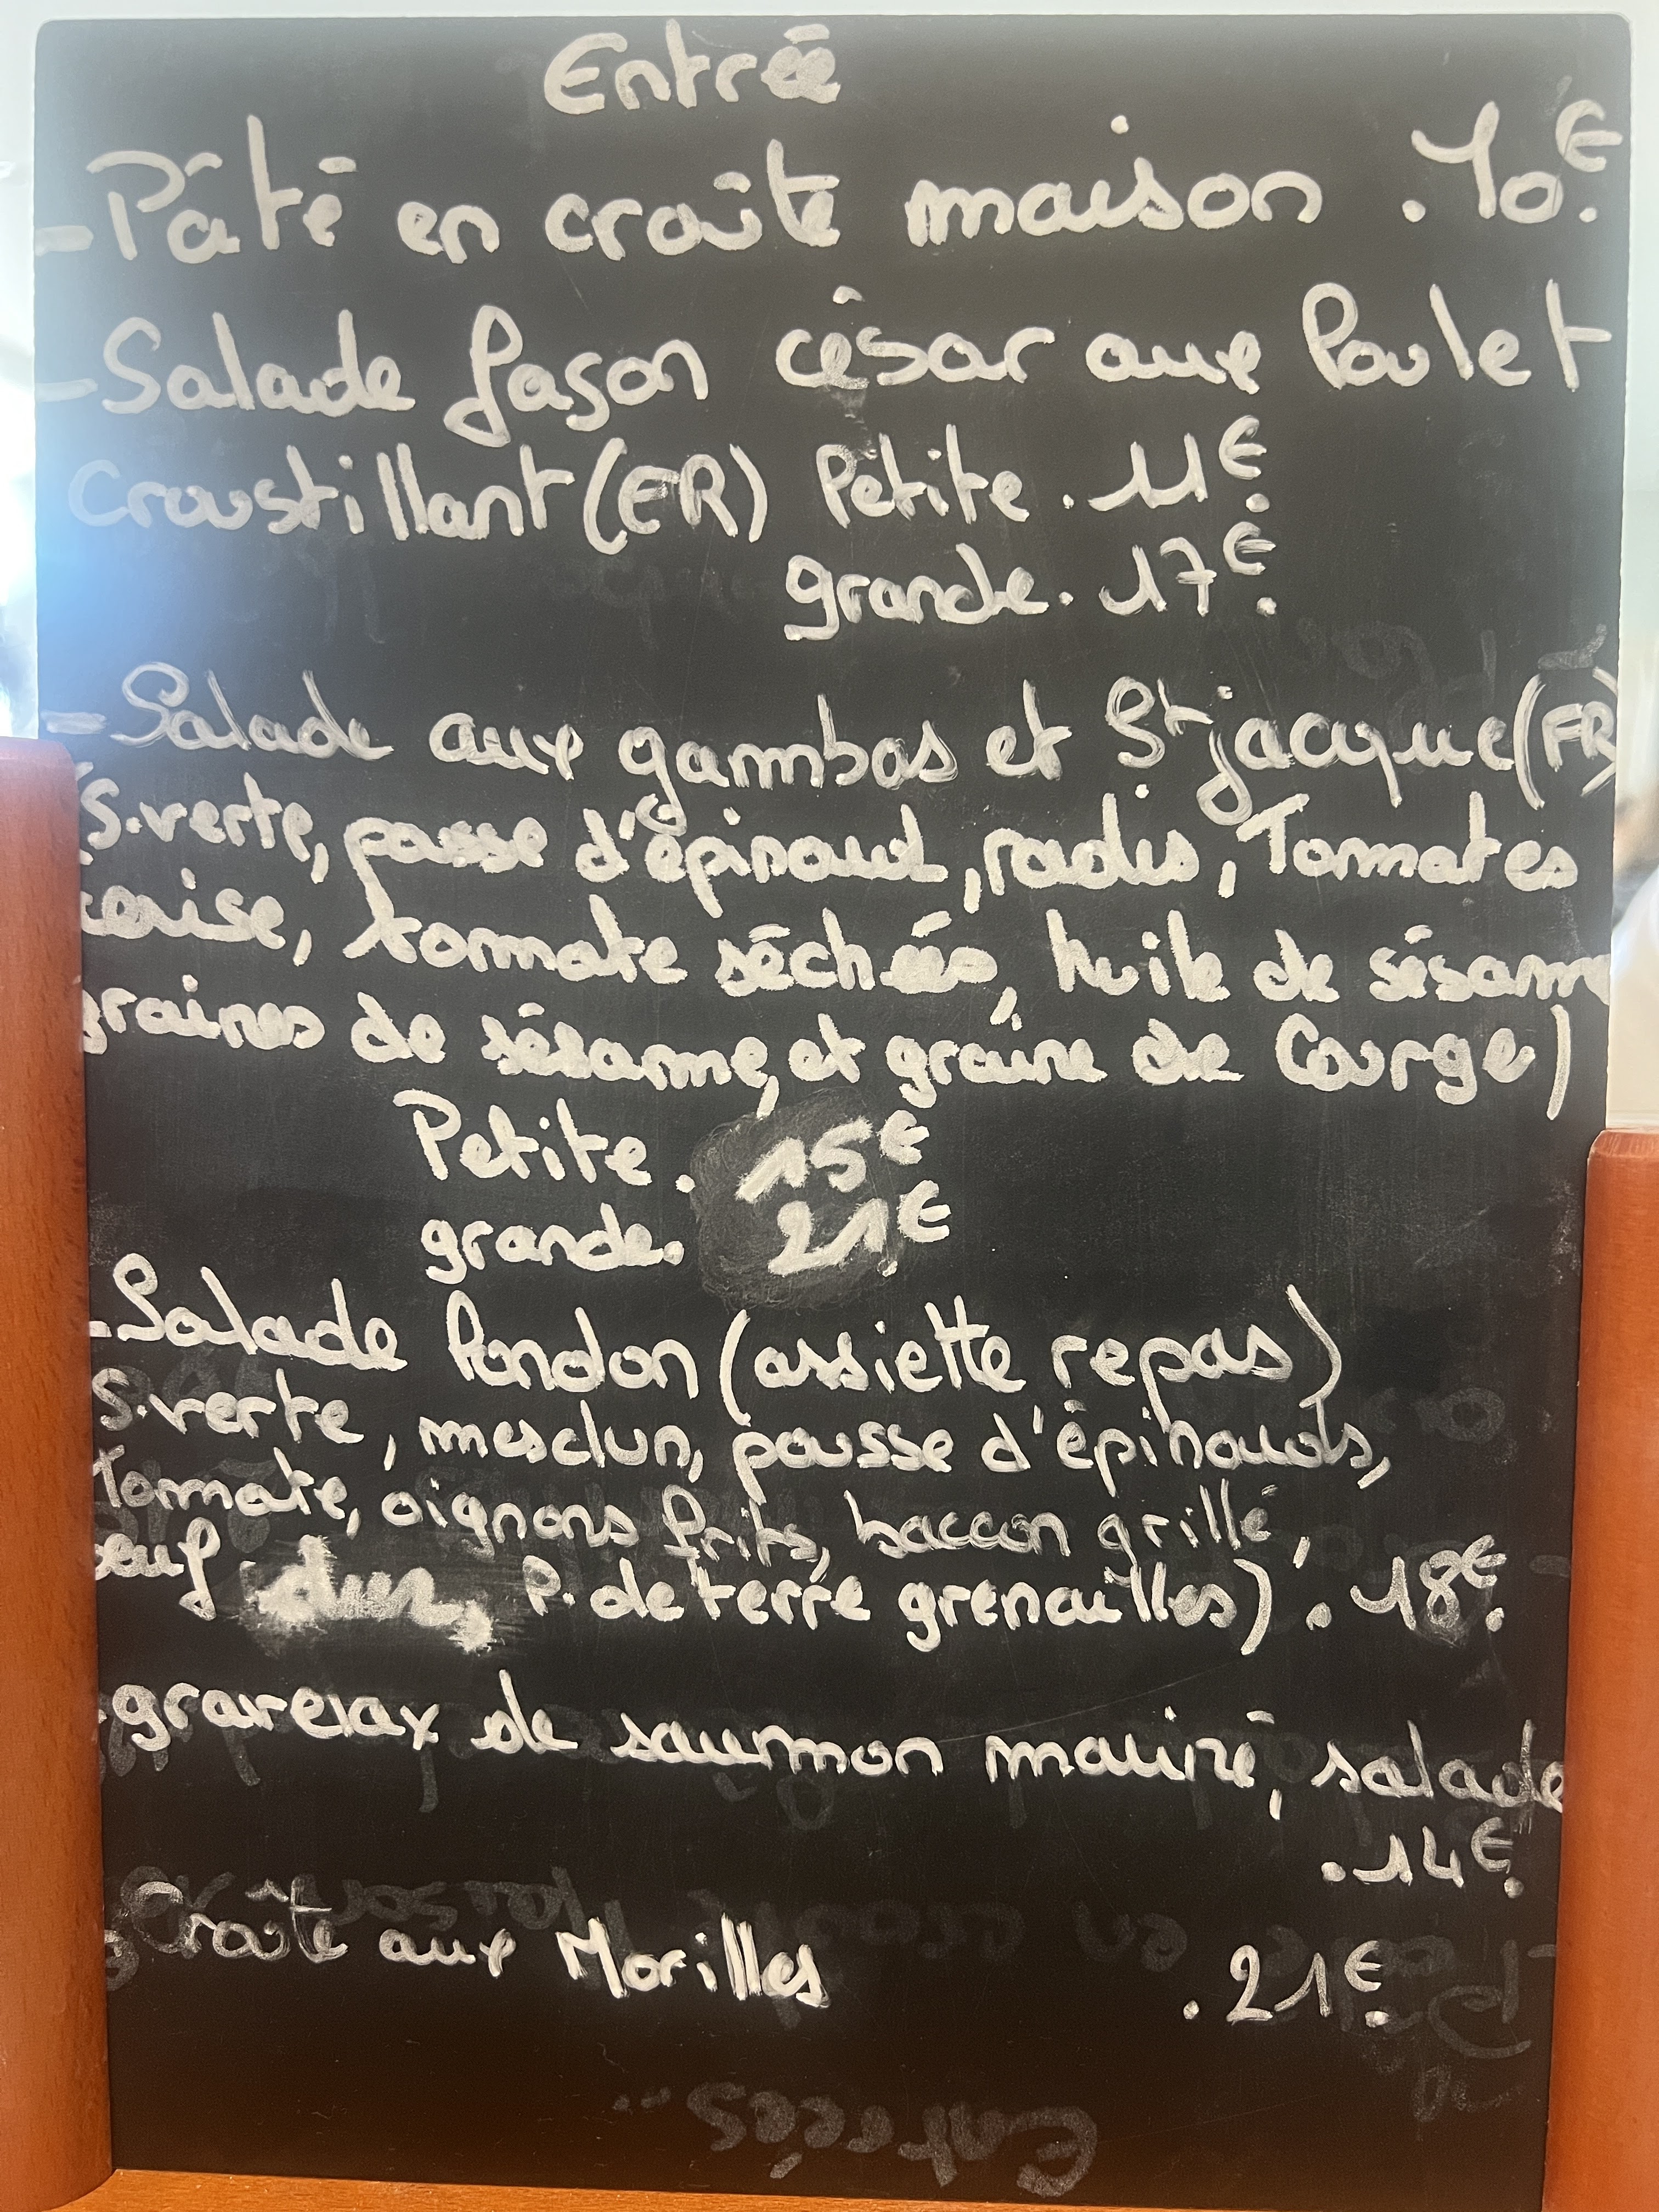 Entrée
-Pâté en croûte maison . 10€.
-Salade façon césar aux Poulet
Croustillant (FR) Petite . 11€.
grande . 17€.
- Salade aux gambas et St jacque (FR)
(S.verte, pousse d'épinard, radis, Tomates
cerise, tomate séchées, huile de sésame
graines de sésame, et graine de Courge)
Petite . 15€
grande. 21€.
-Salade Pondon (assiette repas)
S.verte, mesclun, pousse d'épinards,
tomate, oignons frits, baccon grillé,
oeuf dur, P. de terre grenailles) . 18€.
gravelax de saumon mariné, salade
. 14€.
Croûte aux Morilles . 21€.
Entrées..